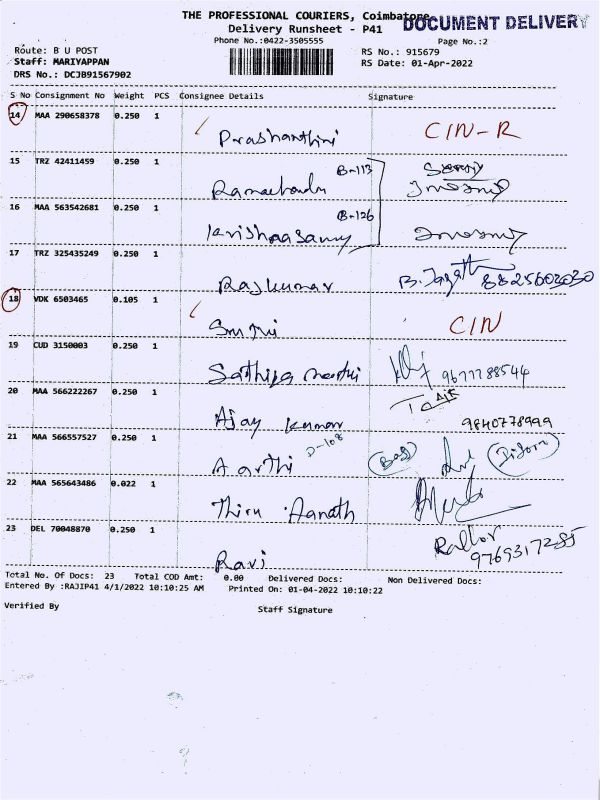 THE PROFESSIONAL COURIERS, Coimbatore
DOCUMENT DELIVERY
Delivery Runsheet - P41
Phone No.:0422-3505555
Page No.:2
Route: B U POST
RS No.: 915679
Staff: MARIYAPPAN
RS Date: 01-Apr-2022
DRS No.: DCJB91567902
S No Consignment No Weight PCS Consignee Details Signature
14 MAA 290658378 0.250 1
Prashanthini CIN-R
15 TRZ 42411459 0.250 1 B-113
Ramachandra
16 MAA 563542681 0.250 1 B-126
Krishnasamy
17 TRZ 325435249 0.250 1
Rajkumar B. Jagath 8825603030
18 VDK 6503465 0.105 1
CIN
19 CUD 3150003 0.250 1
Sathiya 9677788544
20 MAA 566222267 0.250 1
Ajay Kumar 9840778999
21 MAA 566557527 0.250 1 D-108
Aarthi
22 MAA 565643486 0.022 1
Thiru
23 DEL 70048870 0.250 1
Ravi 9769317285
Total No. Of Docs: 23 Total COD Amt: 0.00 Delivered Docs: Non Delivered Docs:
Entered By :RAJIP41 4/1/2022 10:10:25 AM Printed On: 01-04-2022 10:10:22
Verified By Staff Signature